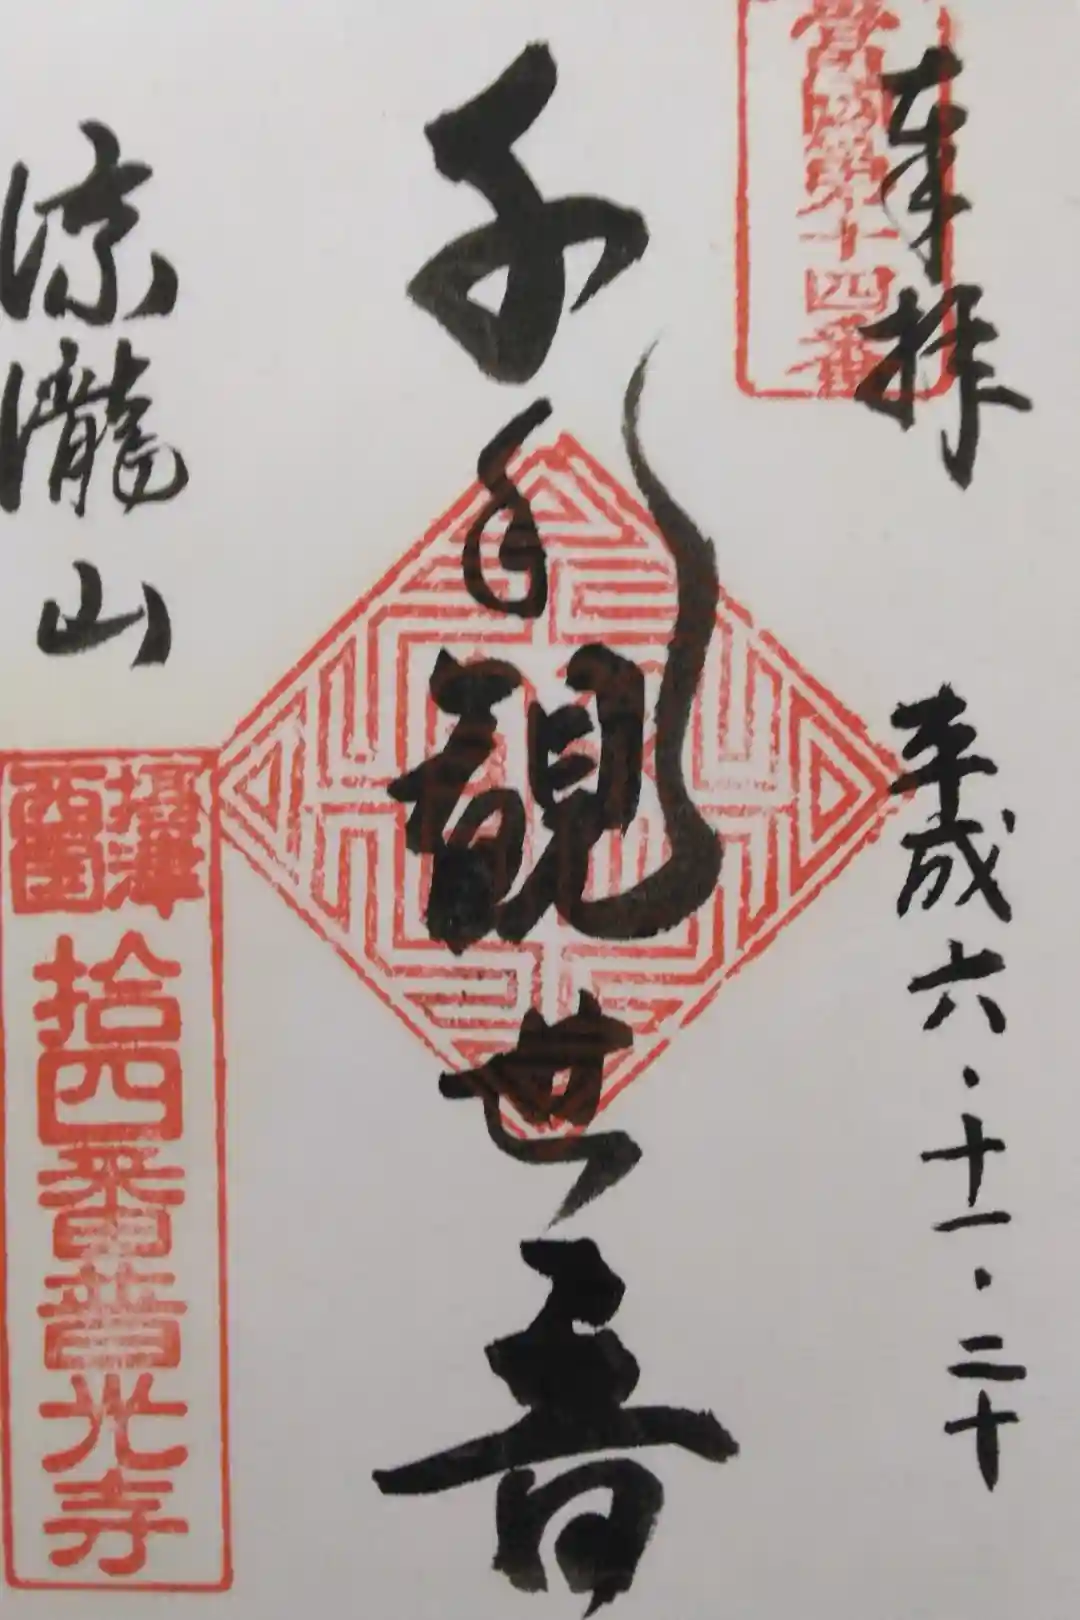 奉拝
十四番
平成六・十一・二十
千手観世音
涼瀧山
攝津
西國
拾四番普光寺